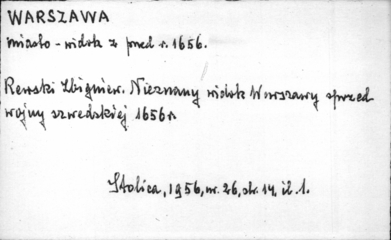 WARSZAWA
miasto - widok z przed r. 1656.
Rewski Zbigniew. Nieznany widok Warszawy sprzed
wojny szwedzkiej 1656 r.
Stolica, 1956, nr. 26, str. 14, il. 1.